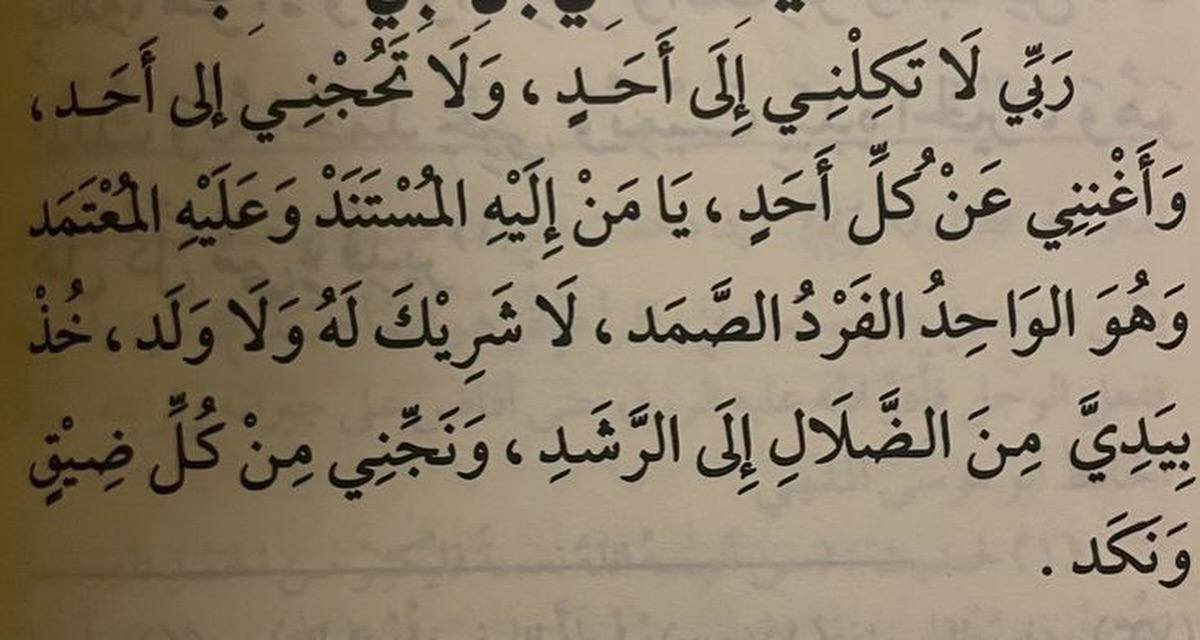 رَبِّي لَا تَكِلْنِي إِلَى أَحَدٍ، وَلَا تَحُجْنِي إلى أَحَد،
وَأَغْنِنِي عَنْ كُلِّ أَحَدٍ، يَا مَنْ إِلَيْهِ المُسْتَنَدْ وَعَلَيْهِ المُعْتَمَد
وَهُوَ الوَاحِدُ الفَرْدُ الصَّمَد، لَا شَرِيْكَ لَهُ وَلَا وَلَد، خُذْ
بِيَدِيَّ مِنَ الضَّلَالِ إِلَى الرَّشَدِ، وَنَجِّنِي مِنْ كُلِّ ضِيْقٍ
وَنَكَد.